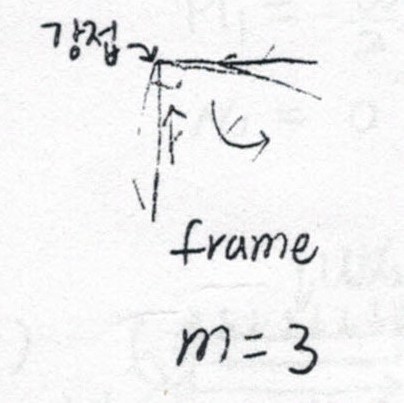 강접
frame
m = 3